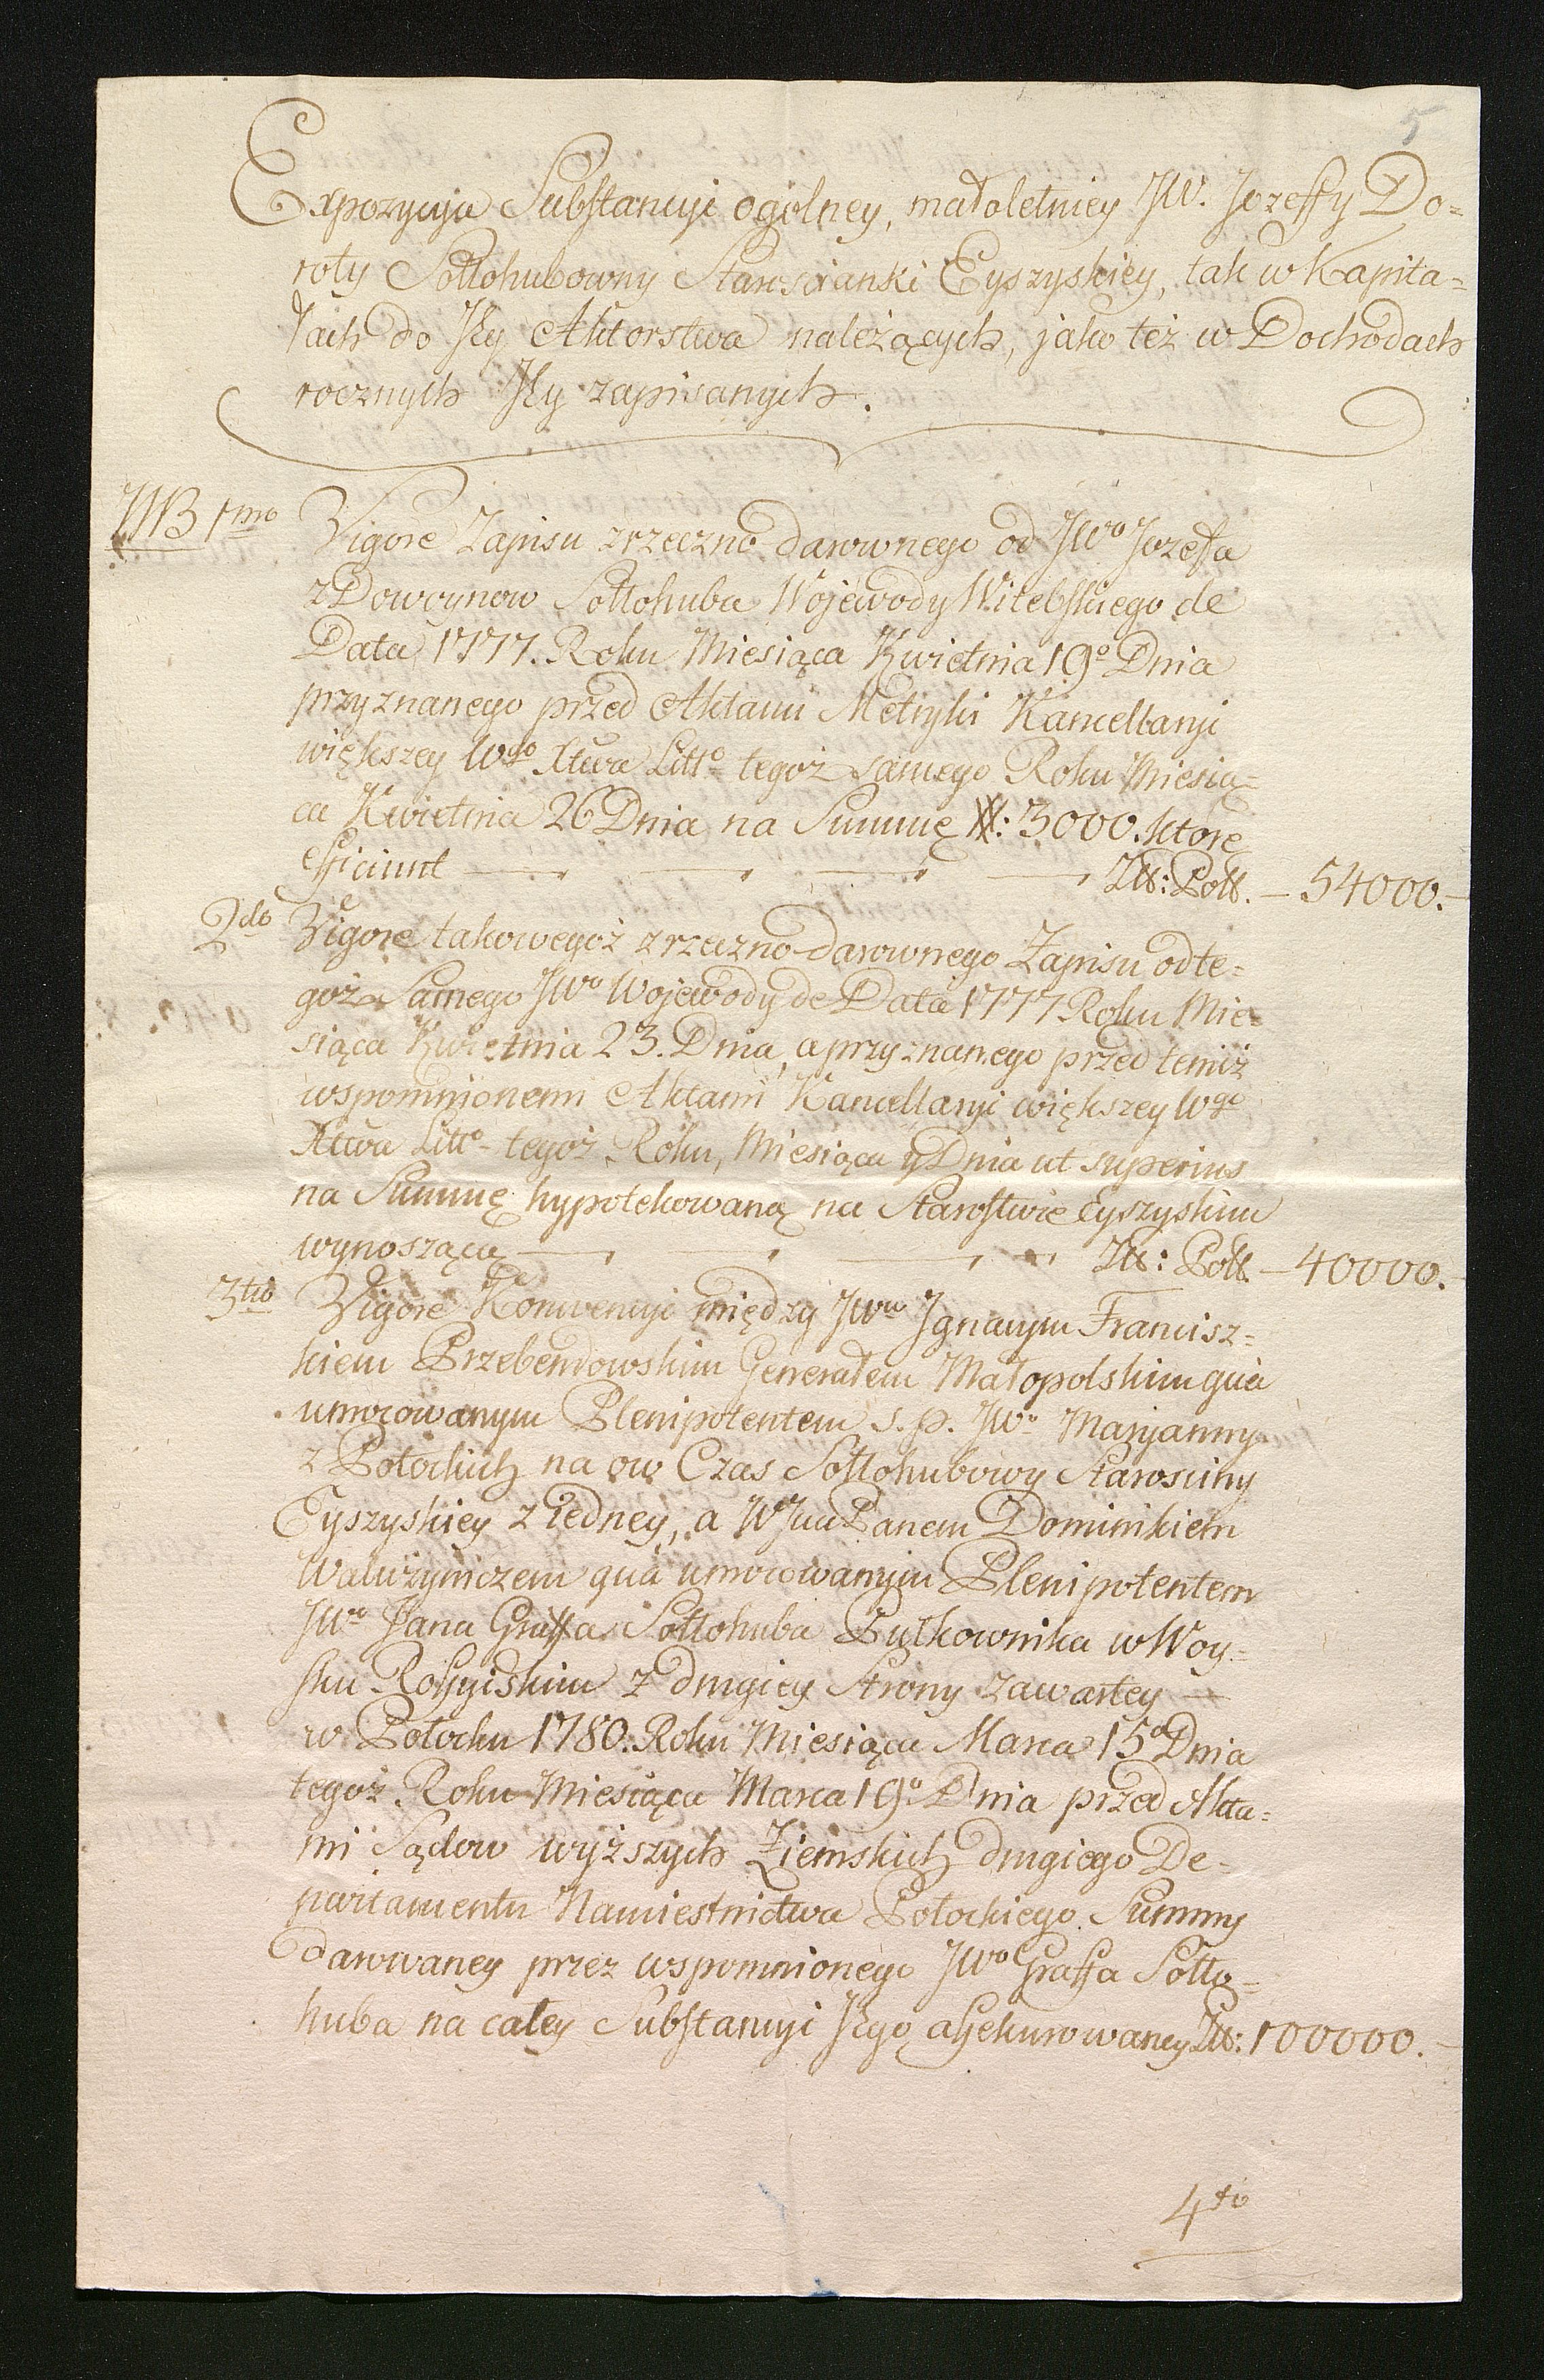 5
Expozycja Substancyi ogolney, małoletniey JW. Jozeffy Do=
roty Sołłohubowny Starościanki Eyszyskiey, tak w Kapita=
łach do Jey Aktorstwa należących, jako też w Dochodach
rocznych Jey zapisanych.
NB 1mo Vigore Zapisu zrzeczno darownego od JWo Jozeffa
z Dowoynow Sołłohuba Wojewody Witebskiego de
Data 1777. Roku Miesiąca Kwietnia 19o Dnia
przyznanego przed Aktami Metryki Kancellaryi
większey Wgo Xtwa Litto tegoż samego Roku Miesią=
ca Kwietnia 26 Dnia na Summę #: 3000. ktore
efficiunt Złł: Poll. — 54000.—
2do Vigore takowegoż zrzeczno-darownego Zapisu od te=
goż Samego JWo Wojewody de Data 1777 Roku Mie=
siąca Kwietnia 23. Dnia, a przyznanego przed temiż
wspomnionemi Aktami Kancellaryi większey Wgo
Xtwa Litto tegoż Roku, Miesiąca y Dnia ut superius
na Summę hypotekowaną na Starostwie Eyszyskim
wynoszącą Złł: Poll. — 40000.
3tio Vigore Konwencyi między JWm Jgnacym Francisz=
kiem Przebendowskim Generałem Małopolskim quà
umocowanym Plenipotentem s. p. JWo Maryanny
z Potockich na ow Czas Sołłohubowy Starosciny
Eyszyskiey z iedney, a WJmc Panem Dominikiem
Walużyniczem quà umocowanym Plenipotentem
JWo Jana Graffa Sołłohuba Pułkownika w Woy=
sku Rossyiskim z drugiey Strony zawartey —
w Połocku 1780. Roku Miesiąca Marca 15o Dnia
tegoż Roku Miesiąca Marca 19o Dnia przed Akta=
mi Sądow wyższych Ziemskich drugiego De=
partamentu Namiestnictwa Połockiego Summy
darowaney przez wspomnionego JWo Graffa Sołło=
huba na całey Substancyi Jego assekurowaney Złł: 100000.—
4to